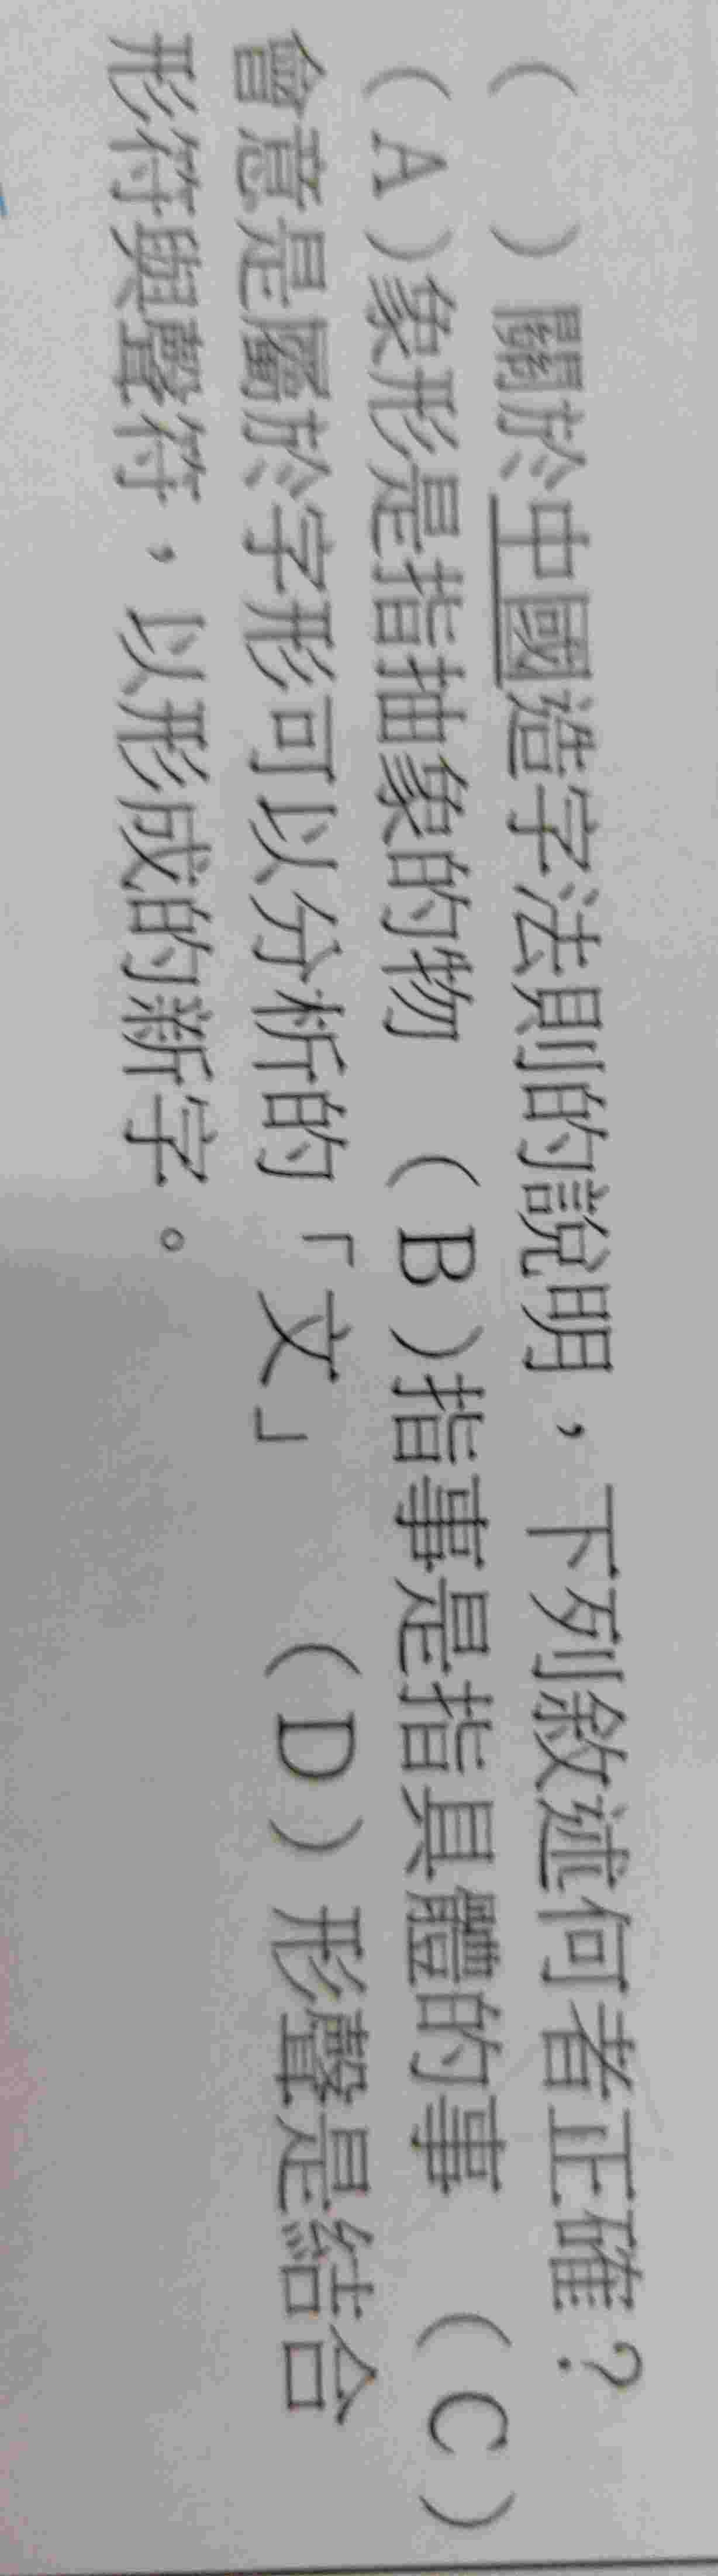 （　）關於中國造字法則的說明，下列敘述何者正確？
（A）象形是指抽象的物　（B）指事是指具體的事　（C）
會意是屬於字形可以分析的「文」　（D）形聲是結合
形符與聲符，以形成的新字。